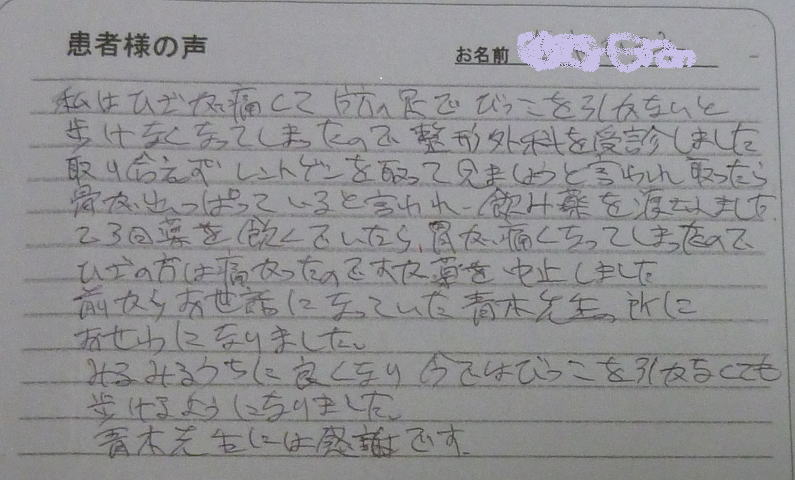 患者様の声
お名前
私はひざが痛くて 片方の足で びっこを引かないと
歩けなくなってしまったので 整形外科を受診しました
取り合えず レントゲンを取って見ましょうと言われ 取ったら
骨が出っぱっていると言われ 飲み薬を渡されました
2、3回薬を飲んでいたら、胃が痛くなってしまったので
ひざの方は痛かったのですが薬を中止しました
前からお世話になっていた青木先生の所に
おせわになりました。
みるみるうちに良くなり 今ではびっこを引かなくても
歩けるようになりました。
青木先生には感謝です。